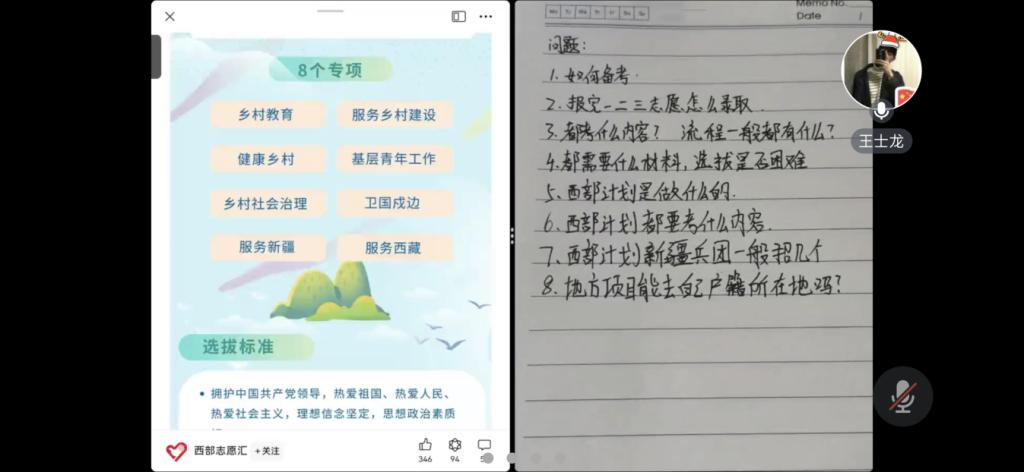 8个专项
乡村教育
服务乡村建设
健康乡村
基层青年工作
乡村社会治理
卫国戍边
服务新疆
服务西藏
选拔标准
• 拥护中国共产党领导，热爱祖国、热爱人民、
热爱社会主义，理想信念坚定，思想政治素质
西部志愿汇 +关注
346
94
Memo No.
Mo Tu We Th Fr Sa Su
Date /
问题：
1. 如何备考.
2. 报完一二三志愿怎么录取.
3. 都考什么内容？ 流程一般都有什么？
4. 都需要什么材料，选拔是否困难
5. 西部计划是做什么的.
6. 西部计划都要考什么内容.
7. 西部计划新疆兵团一般招几个
8. 地方项目能去自己户籍所在地吗？
王士龙